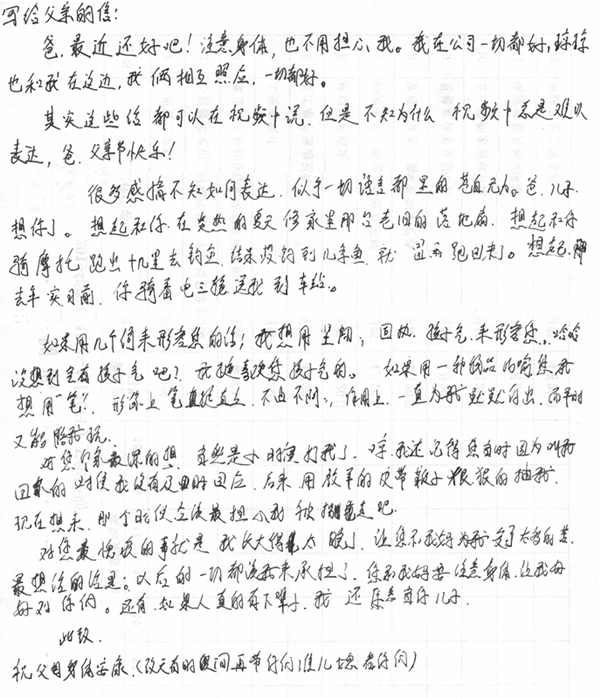 写给父亲的信:
爸,最近还好吧!注意身体,也不用担心我。我在公司一切都好,琼琼
也和我在这边,我俩相互照应,一切都好。
其实这些话都可以在视频中说,但是不知为什么 视频中总是难以
表达,爸,父亲节快乐!
很多感情不知如何表达,似乎一切语言都里的苍白无力。爸,儿子
想你了。想起和你在炎热的夏天修家里那台老旧的落地扇,想起和你
骑摩托跑出十几里去钓鱼,结果没钓到几条鱼,就冒雨跑回来了。想起
去年实习前,你骑着电三轮送我到车站。
如果用几个词来形容您的话;我想用坚韧,固执,孩子气,来形容您,哈哈
没想到会有孩子气吧?我挺喜欢您孩子气的。如果用一种物品比喻您我
想用"笔"。形容上笔直挺直立,不曲不阿,作用上,一直为我默默付出,而平时
又能陪我玩。
对您印象最深的想,自然是小时候打我了,哼,我还记得您当时因为叫我
回家的时候我没有及时回应,后来用
现在想来,那个时候应该最担心我
对您最愧疚的事就是我长大得太晚了,让您不
最想说的话是:以后的一切都该我来承担了,您和我妈要注意身体,让我好
好对你们。还有,如果人真的有下辈子,我还愿意当你儿子。
此致
祝父母身体安康。(改天有时间再带你们